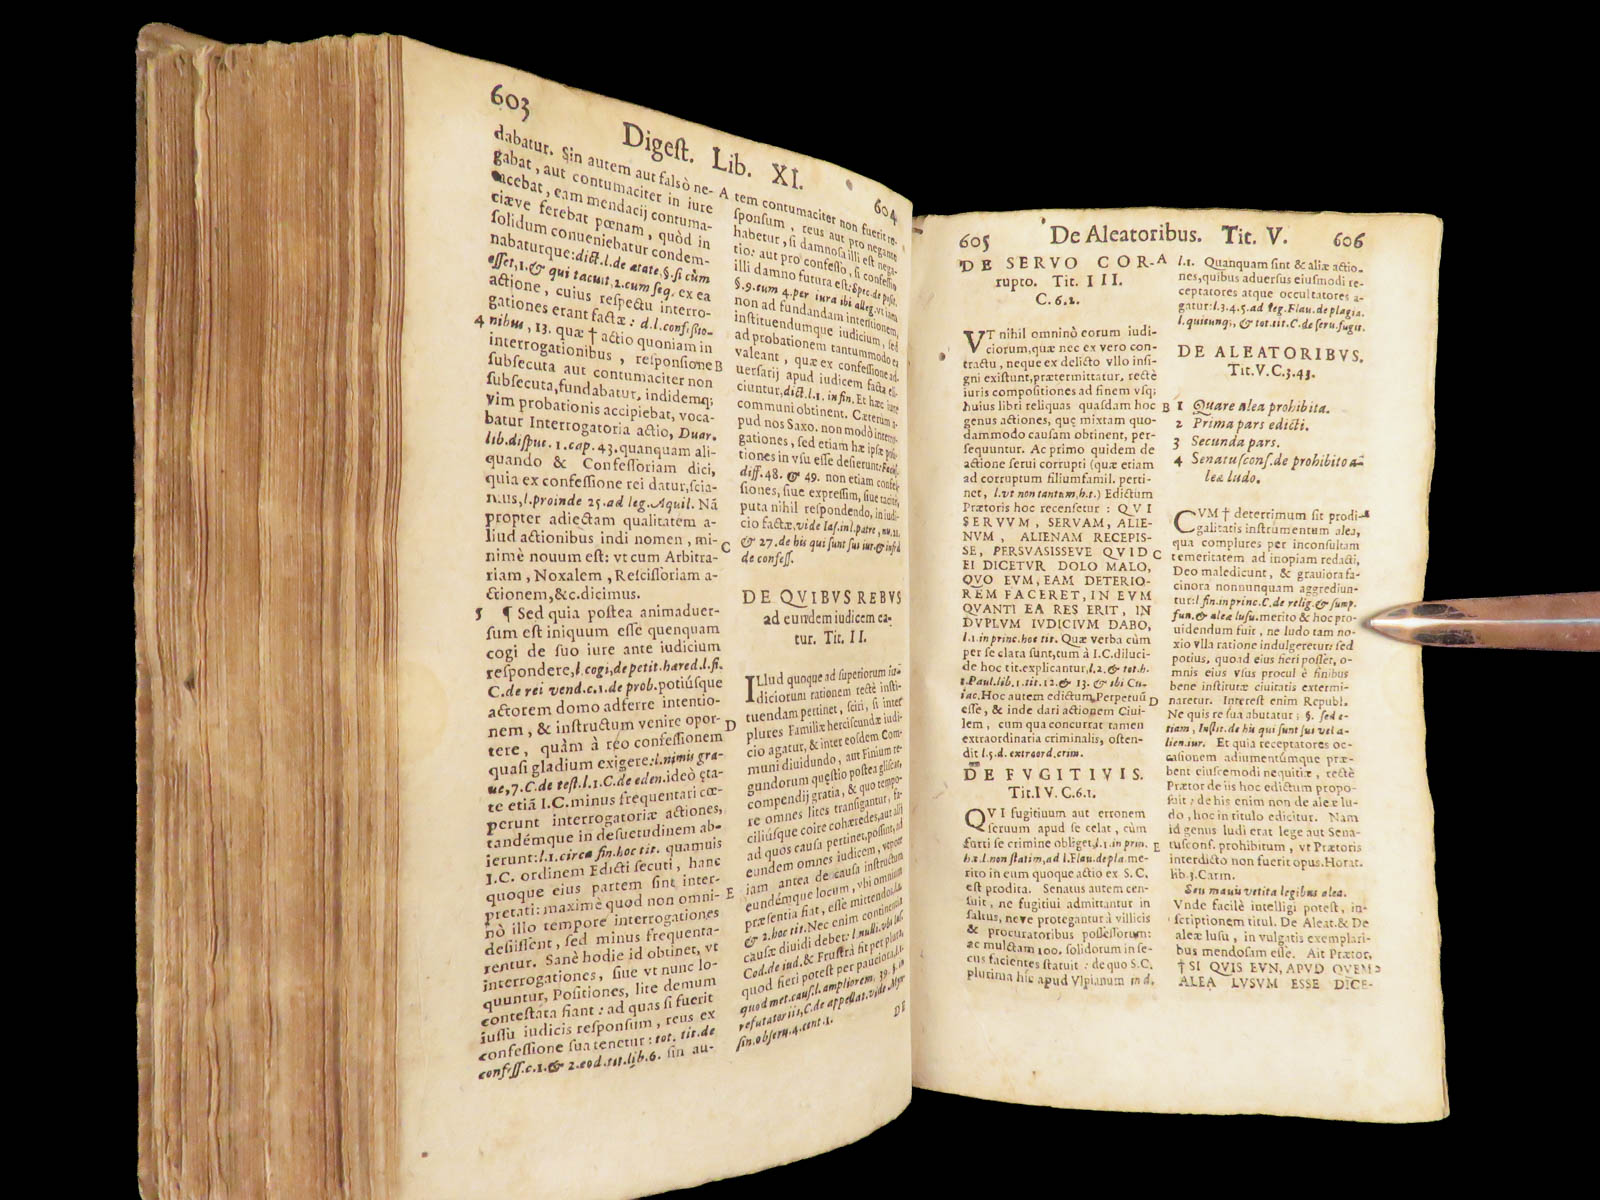 603
Digest. Lib. XI.
604
dabatur. Sin autem aut falsò ne-
gabat, aut contumaciter in iure
tacebat, eam mendacij contuma-
ciæve ferebat pœnam, quòd in
solidum conueniebatur condem-
nabaturque: dict.l.de ætate, §.si cùm
esset, 1. & qui tacuit, 2. cum seq. ex ea
actione, cuius respectu interro-
gationes erant factæ: d.l.confessio-
4 nibus, 13. quæ † actio quoniam in
interrogationibus, responsione
subsecuta aut contumaciter non
subsecuta, fundabatur, indidemq;
vim probationis accipiebat, voca-
batur Interrogatoria actio, Duar.
lib.disput. 1. cap. 43. quanquam ali-
quando & Confessoriam dici,
quia ex confessione rei datur, scia-
mus, l.proinde 25. ad leg. Aquil. Nā
propter adiectam qualitatem a-
liud actionibus indi nomen, mi-
nimè nouum est: vt cum Arbitra-
riam, Noxalem, Rescissoriam a-
ctionem, &c. dicimus.
5 ¶ Sed quia postea animaduer-
sum est iniquum esse quenquam
cogi de suo iure ante iudicium
respondere, l.cogi, de petit.hæred.l.fi.
C.de rei vend.c.1.de prob. potiúsque
actorem domo adferre intentio-
nem, & instructum venire opor-
tere, quàm à reo confessionem
quasi gladium exigere: l.nimis gra-
ue, 7. C. de test.l.1.C.de eden. ideò cta-
te etiā I.C. minus frequentari cœ-
perunt interrogatoriæ actiones,
tandémque in desuetudinem ab-
ierunt: l.1.circa fin.hoc tit. quamuis
I.C. ordinem Edicti secuti, hanc
quoque eius partem sint inter-
pretati: maximè quod non omni-
nò illo tempore interrogationes
desiissent, sed minus frequenta-
rentur. Sanè hodie id obtinet, vt
interrogationes, siue vt nunc lo-
quuntur, Positiones, lite demum
contestata fiant: ad quas si fuerit
iussu iudicis responsum, reus ex
confessione sua tenetur: tot. tit. de
confess.c.1. & 2. eod. tit. lib. 6. sin au-
A tem contumaciter non fuerit re-
sponsum, reus aut pro negante
habetur, si damnosa illi est nega-
tio: aut pro confesso, si confessio
illi damno futura est: Spec. de posit.
§. 9. cum 4. per iura ibi alleg. vt iam
non ad fundandam intentionem,
instituendumque iudicium, sed
ad probationem tantummodo ea
B valeant, quæ ex confessione ad-
uersarij apud iudicem facta eli-
ciuntur, dict.l.1. in fin. Et hæc iure
communi obtinent. Cæterùm a-
pud nos Saxo. non modò interro-
gationes, sed etiam hæ ipsæ posi-
tiones in vsu esse desierunt: Fachs.
diff. 48. & 49. non etiam confes-
siones, siue expressim, siue tacitè,
puta nihil respondendo, in iudi-
cio factæ, vide Ias.in l.patre, nu.21.
C & 27. de his qui sunt sui iur. & infrà
de confess.
DE QVIBVS REBVS
ad eundem iudicem ea-
tur. Tit. II.
ILlud quoque ad superiorum iu-
diciorum rationem rectè insti-
tuendam pertinet, sciri, si inter
D plures Familiæ herciscundæ iudi-
cio agatur, & inter eosdem Com-
muni diuidundo, aut Finium re-
gundorum quæstio postea gliscat,
compendij gratia, & quo tempo-
re omnes lites transigantur, fa-
ciliúsque coire cohæredes, aut alij
ad quos causa pertinet, possint, ad
eundem omnes iudicem, vtpote
iam antea de causa instructum
E eundémque locum, vbi omnium
præsentia fiat, esse mittendos, l.1.
& 2. hoc tit. Nec enim continentia
causæ diuidi debet: l.nulli.vbi Ias.
Cod. de iud. & Frustrà fit per plura,
quod fieri potest per pauciora, l.1.
quod met.caus.l.ampliorem, 39. §. in
refutatoriis, C.de appellat.vide Myn-
sin.obseru.4.cent.1.
DE
605
De Aleatoribus. Tit. V.
606
DE SERVO COR-
rupto. Tit. III.
C. 6. 2.
VT nihil omninò eorum iudi-
ciorum, quæ nec ex vero con-
tractu, neque ex delicto vllo insi-
gni existunt, prætermittatur, rectè
iuris compositiones ad finem vsq;
huius libri reliquas quasdam hoc
genus actiones, quę mixtam quo-
dammodo causam obtinent, per-
sequuntur. Ac primo quidem de
actione serui corrupti (quæ etiam
ad corruptum filiumfamil. perti-
net, l.vt non tantum, h.t.) Edictum
Prætoris hoc recensetur: QVI
SERVVM, SERVAM, ALIE-
NVM, ALIENAM RECEPIS-
SE, PERSVASISSEVE QVID
EI DICETVR DOLO MALO,
QVO EVM, EAM DETERIO-
REM FACERET, IN EVM
QVANTI EA RES ERIT, IN
DVPLVM IVDICIVM DABO,
l.1.in princ.hoc tit. Quæ verba cùm
per se clara sunt, tùm à I.C. diluci-
de hoc tit. explicantur, l.2. & tot.h.
t.Paul.lib.1.tit.12. & 13. & ibi Cu-
iac. Hoc autem edictum Perpetuū
esse, & inde dari actionem Ciui-
lem, cum qua concurrat tamen
extraordinaria criminalis, osten-
dit l.5.d. extraord.crim.
DE FVGITIVIS.
Tit.IV. C.6.1.
QVI fugitiuum aut erronem
seruum apud se celat, cùm
furti se crimine obliget, l.1.in prin.
hæ.l.non statim, ad l.Flau.depla. me-
rito in eum quoque actio ex S.C.
est prodita. Senatus autem cen-
suit, ne fugitiui admittantur in
saltus, neve protegantur à villicis
& procuratoribus possessorum:
ac mulctam 100. solidorum in se-
cus facientes statuit: de quo S.C.
plurima hîc apud Vlpianum in d.
A l.1. Quanquam sint & aliæ actio-
nes, quibus aduersus eiusmodi re-
ceptatores atque occultatores a-
gatur: l.3.4.5. ad leg. Flau. de plagia.
l.quicunq;, & tot.tit.C.de seru.fugit.
DE ALEATORIBVS.
Tit.V.C.3.43.
B 1 Quare alea prohibita.
2 Prima pars edicti.
3 Secunda pars.
4 Senatuscons. de prohibito a-
leæ ludo.
CVM † deterrimum sit prodi- 1
galitatis instrumentum alea,
qua complures per inconsultam
C temeritatem ad inopiam redacti,
Deo maledicunt, & grauiora fa-
cinora nonnunquam aggrediun-
tur: l fin.in princ.C.de relig. & sump.
fun. & aleæ lusu. merito & hoc pro-
uidendum fuit, ne ludo tam no-
xio vlla ratione indulgeretur: sed
potius, quoad eius fieri posset, o-
mnis eius vsus procul è finibus
bene institutæ ciuitatis extermi-
D naretur. Interest enim Republ.
Ne quis re sua abutatur: §. sed e-
tiam, Instit.de his qui sunt sui vel a-
lien.iur. Et quia receptatores oc-
casionem adiumentúmque præ-
bent eiuscemodi nequitiæ, rectè
Prætor de iis hoc edictum propo-
suit: de his enim non de aleæ lu-
do, hoc in titulo edicitur. Nam
id genus ludi erat lege aut Sena-
E tuscons. prohibitum, vt Prætoris
interdicto non fuerit opus. Horat.
lib.3. Carm.
Seu mauis vetita legibus alea.
Vnde facilè intelligi potest, in-
scriptionem titul. De Aleat. & De
aleæ lusu, in vulgatis exemplari-
bus mendosam esse. Ait Prætor,
† SI QVIS EVN, APVD QVEM 2
ALEA LVSVM ESSE DICE-